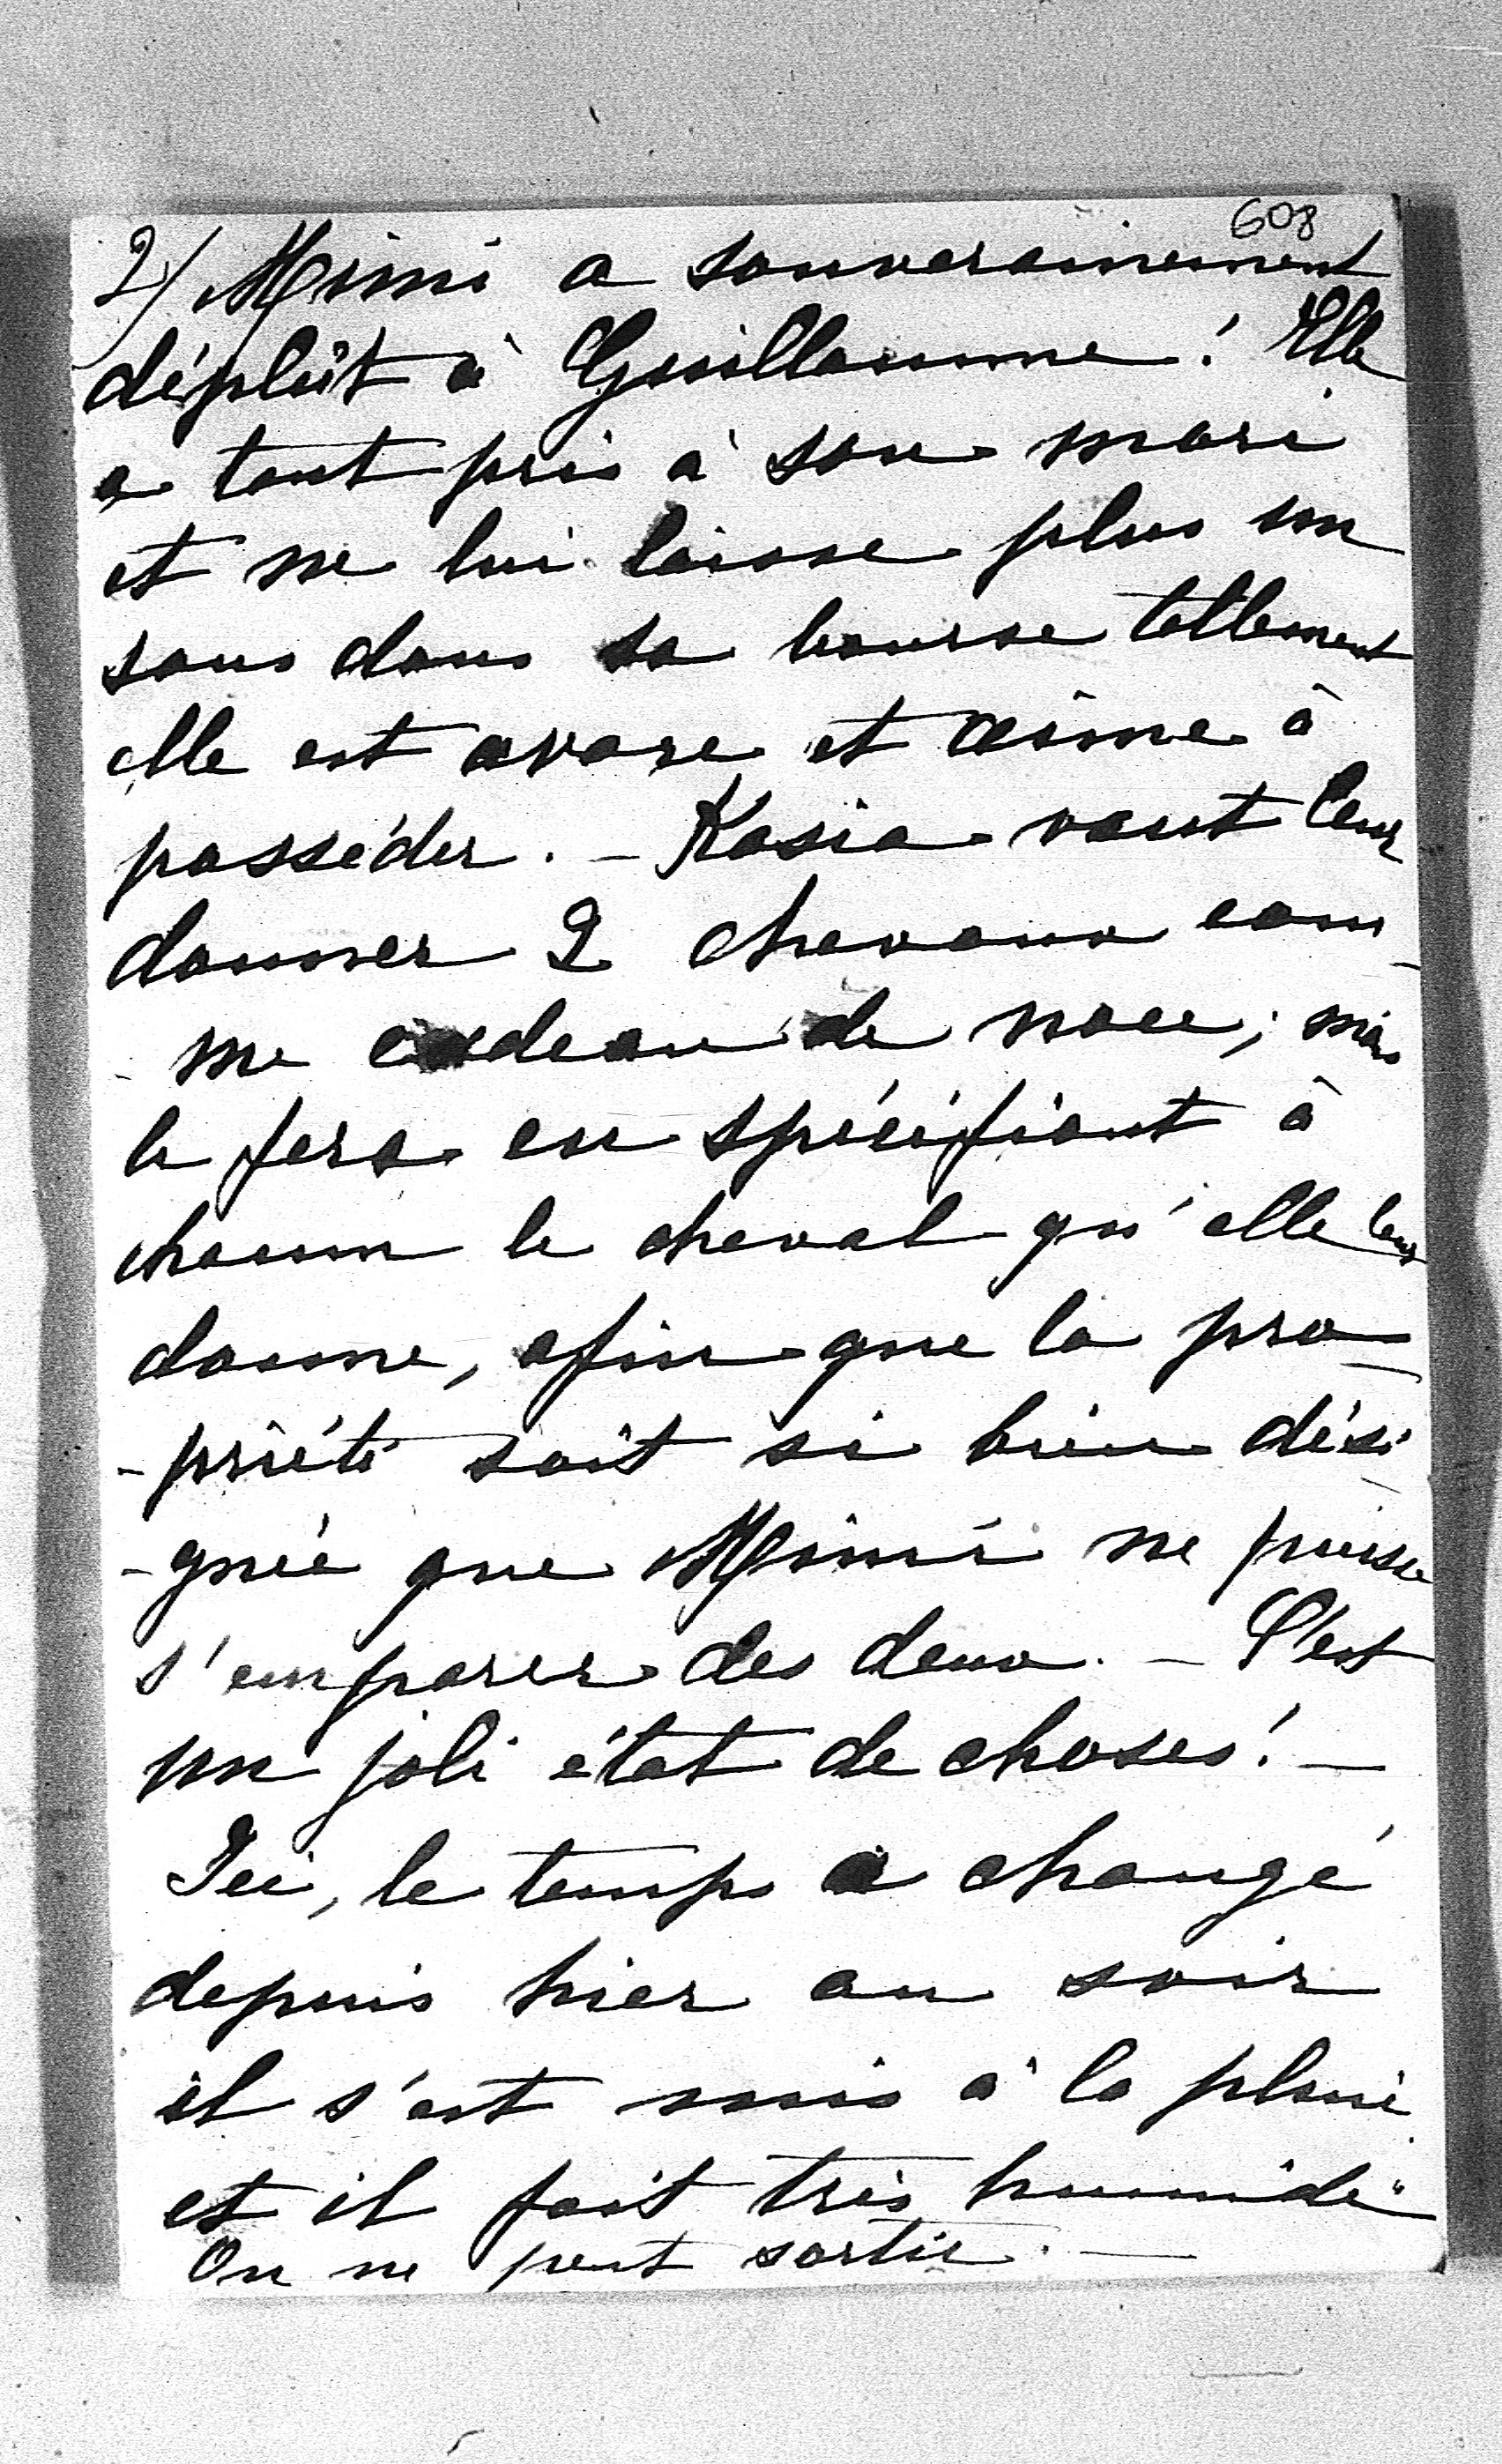 608
2/ Mimi a souverainement
déplût à Guillaume! Elle
a tout pris à son mari
et ne lui laisse plus un
sous dans sa bourse tellement
elle est avare et aime à
posséder. — Kasia veut leur
donner 2 chevaux com-
-me cadeau de noce; mais
le fera en spécifiant à
chacun le cheval qu'elle leur
donne, afin que la pro-
-priété soit si bien dési-
-gnée que Mimi ne puisse
s'emparer des deux. — C'est
un joli état de choses! —
Ici, le temps a changé
depuis hier au soir
il s'est mis à la pluie
et il fait très humide.
On ne peut sortir. —